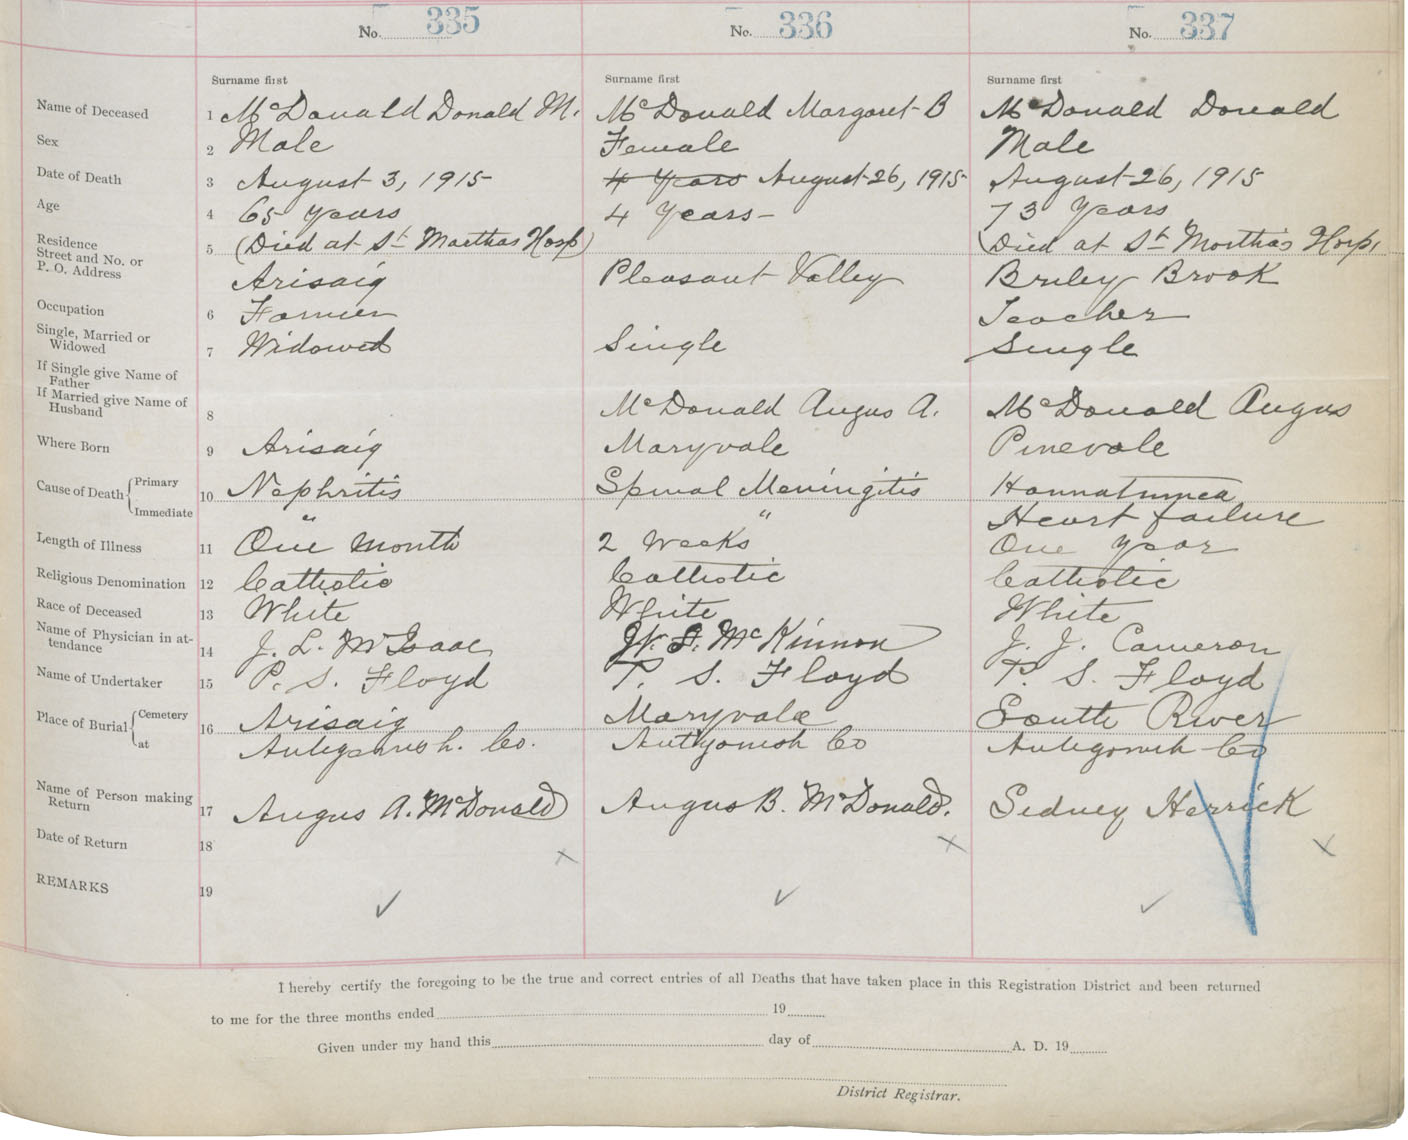 No. 335 No. 336 No. 337
Surname first Surname first Surname first
Name of Deceased 1 McDonald Donald M. McDonald Margaret B McDonald Donald
Sex 2 Male Female Male
Date of Death 3 August 3, 1915 4 Years August 26, 1915 August 26, 1915
Age 4 65 years 4 Years 73 Years
Residence 5 (Died at St Marthas Hosp) (Died at St Marthas Hosp,
Street and No. or
P. O. Address Arisaig Pleasant Valley Briley Brook
Occupation 6 Farmer Teacher
Single, Married or 7 Widowed Single Single
Widowed
If Single give Name of
Father
If Married give Name of
Husband 8 McDonald Angus A. McDonald Angus
Where Born 9 Arisaig Maryvale Pinevale
Cause of Death Primary 10 Nephritis Spinal Meningitis
Immediate " " Heart failure
Length of Illness 11 One month 2 Weeks One Year
Religious Denomination 12 Catholic Catholic Catholic
Race of Deceased 13 White White White
Name of Physician in at-
tendance 14 J. L. McIsaac W. F. McKinnon J. J. Cameron
Name of Undertaker 15 P. S. Floyd P. S. Floyd P. S. Floyd
Place of Burial Cemetery 16 Arisaig Maryvale South River
at Antigonish. Co. Antigonish Co Antigonish Co
Name of Person making
Return 17 Angus A. McDonald Angus B. McDonald. Sidney Herrick
Date of Return 18
REMARKS 19
I hereby certify the foregoing to be the true and correct entries of all Deaths that have taken place in this Registration District and been returned
to me for the three months ended 19
Given under my hand this day of A. D. 19
District Registrar.